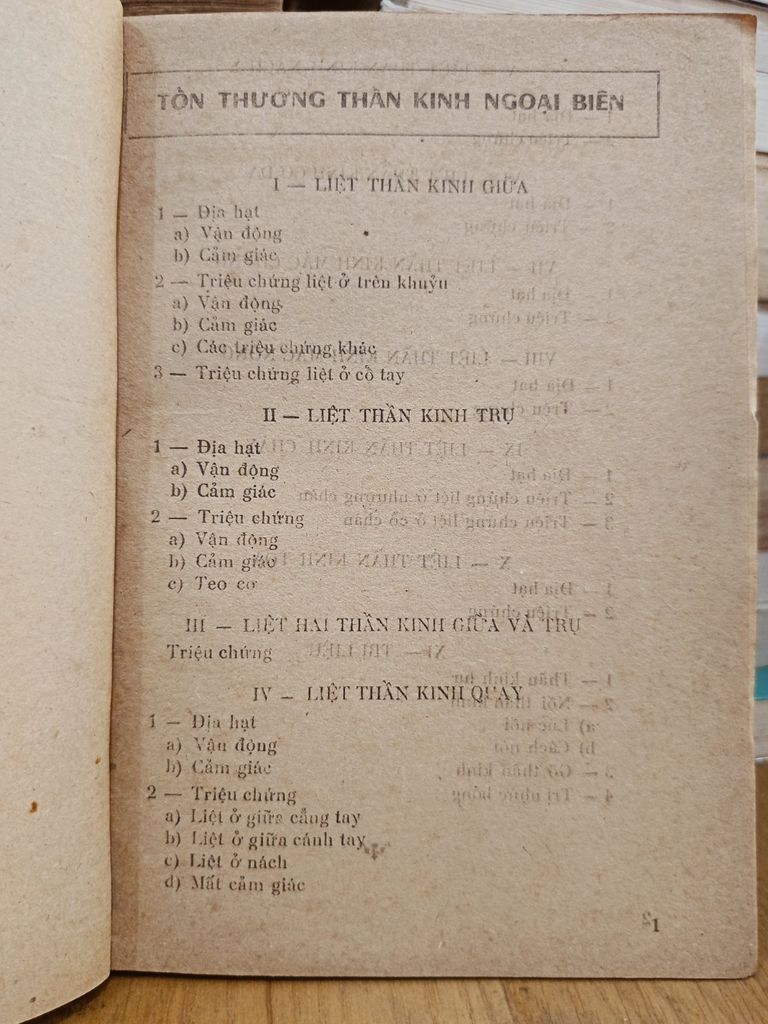 TỔN THƯƠNG THẦN KINH NGOẠI BIÊN
I — LIỆT THẦN KINH GIỮA
1 — Địa hạt
a) Vận động
b) Cảm giác
2 — Triệu chứng liệt ở trên khuỷu
a) Vận động
b) Cảm giác
c) Các triệu chứng khác
3 — Triệu chứng liệt ở cổ tay
II — LIỆT THẦN KINH TRỤ
1 — Địa hạt
a) Vận động
b) Cảm giác
2 — Triệu chứng
a) Vận động
b) Cảm giác
c) Teo cơ
III — LIỆT HAI THẦN KINH GIỮA VÀ TRỤ
Triệu chứng
IV — LIỆT THẦN KINH QUAY
1 — Địa hạt
a) Vận động
b) Cảm giác
2 — Triệu chứng
a) Liệt ở giữa cẳng tay
b) Liệt ở giữa cánh tay
c) Liệt ở nách
d) Mất cảm giác
1